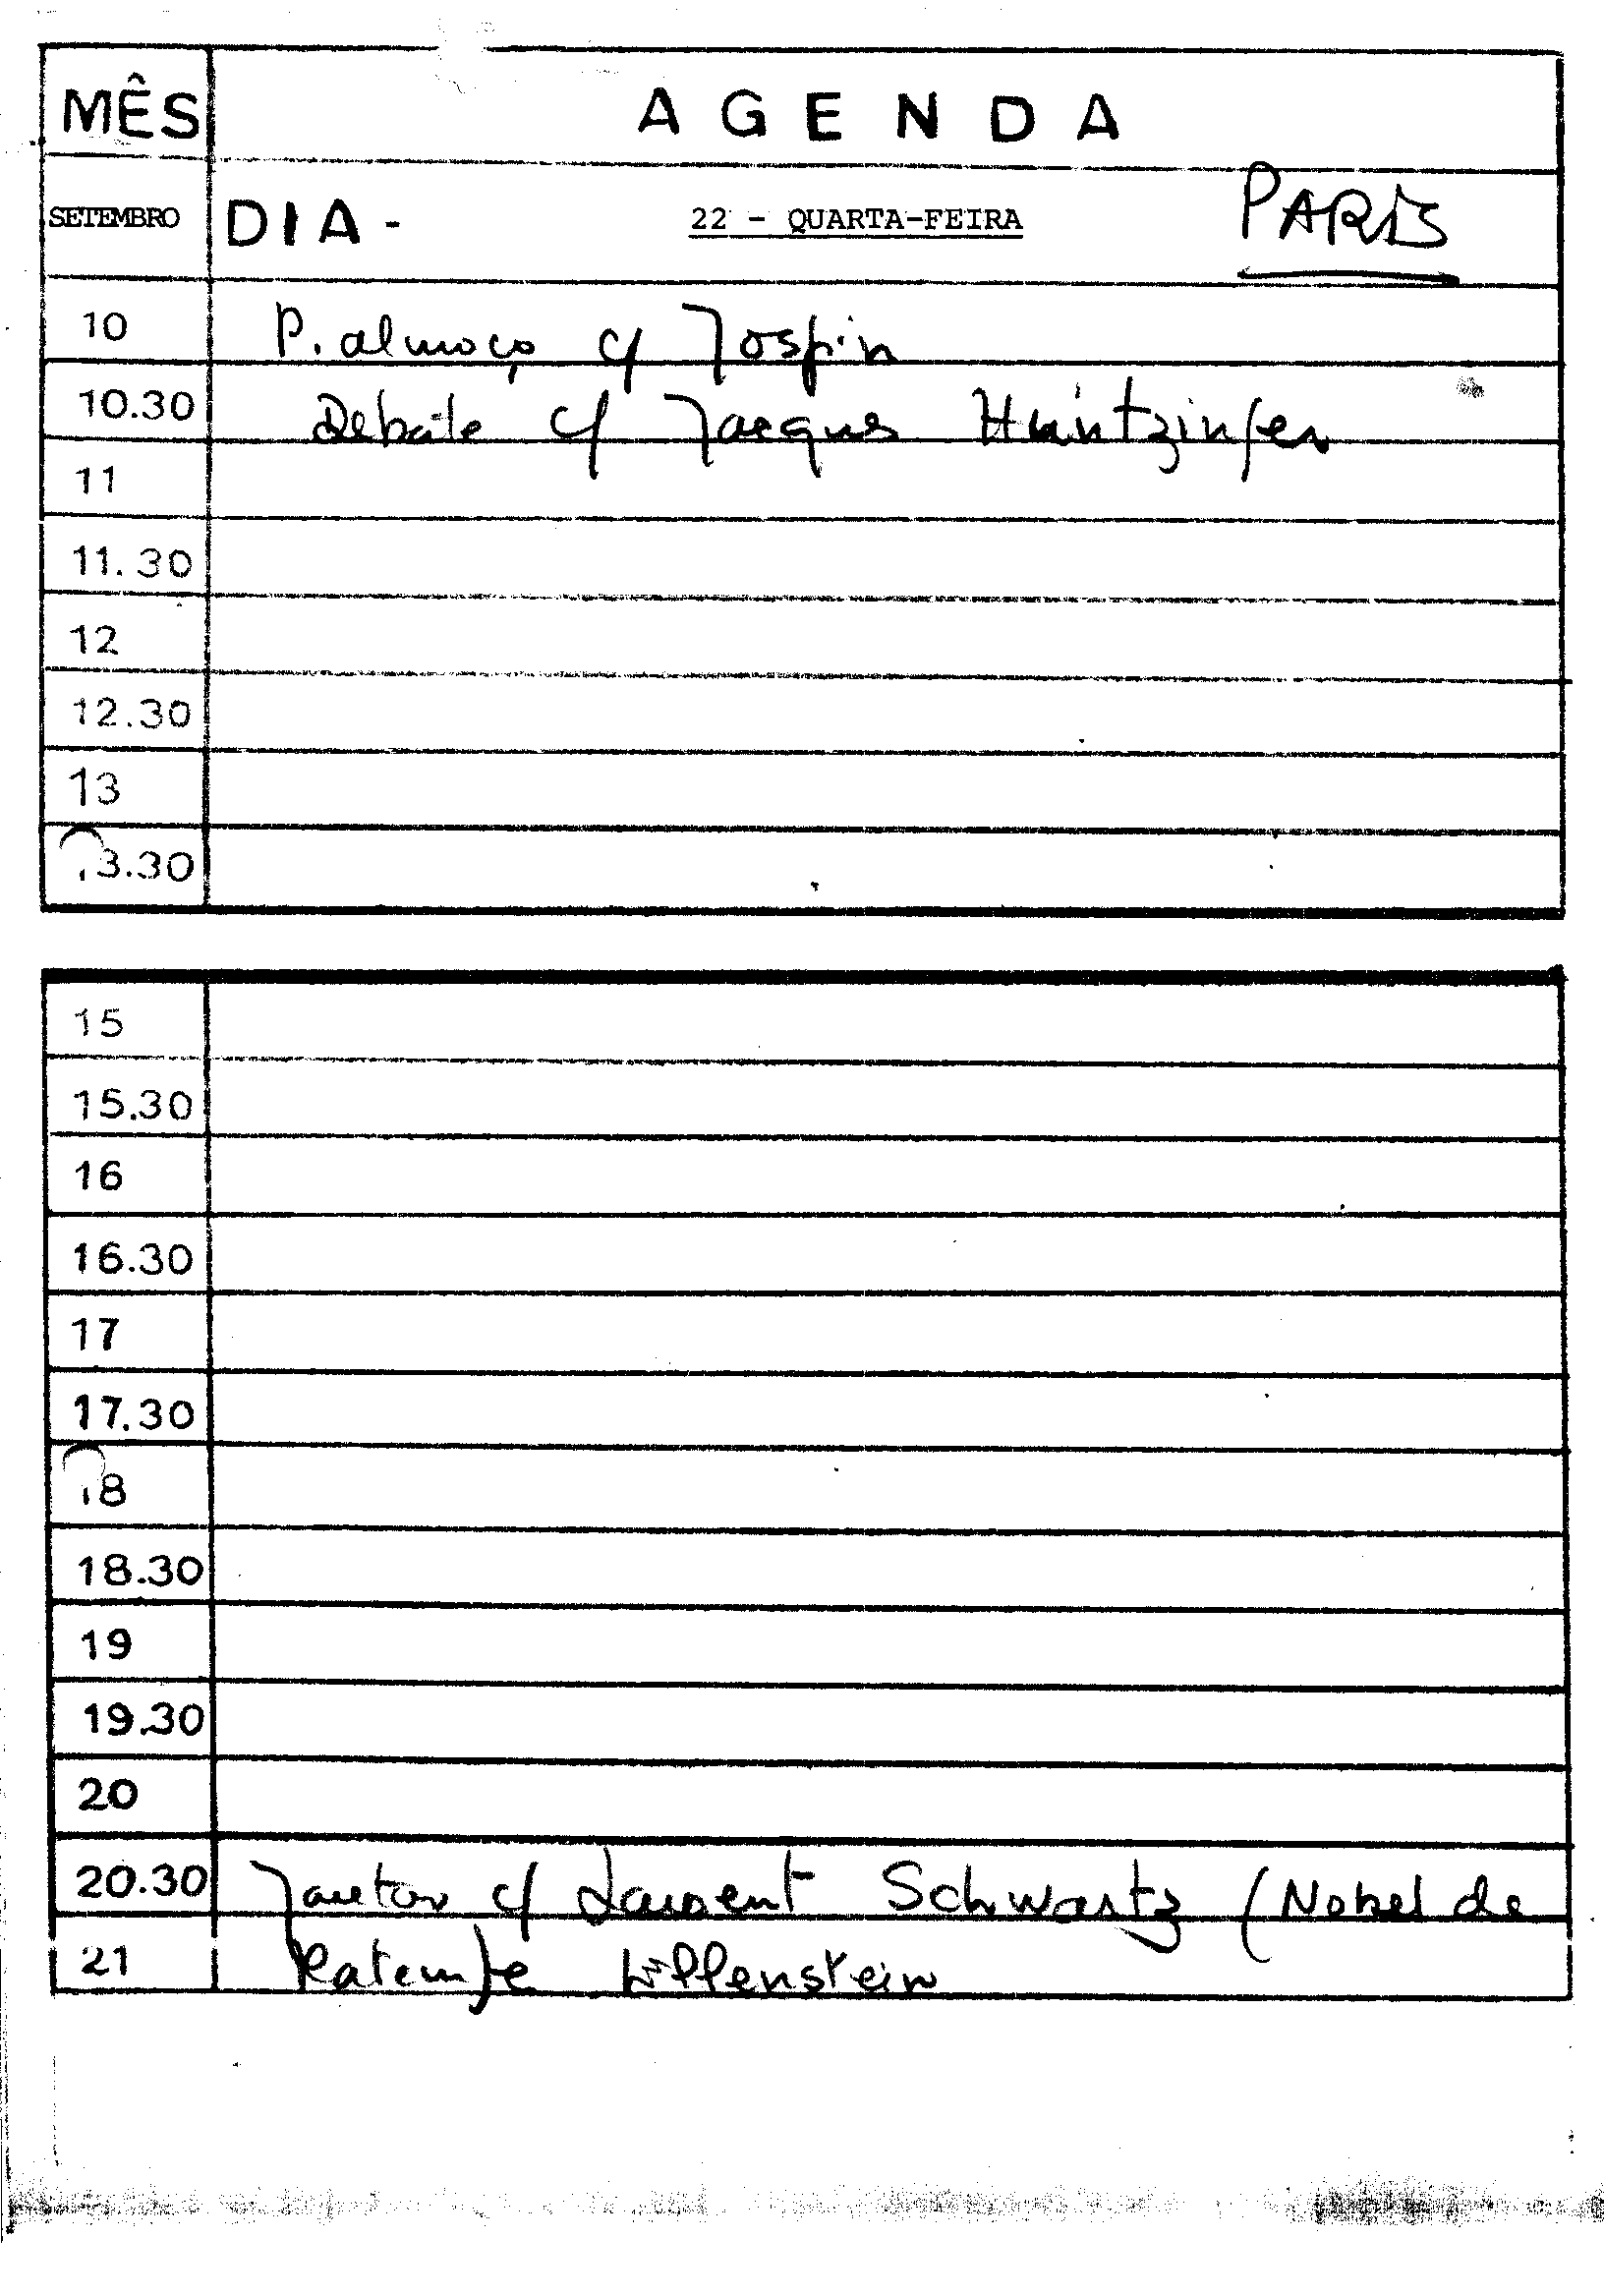 MÊS AGENDA
SETEMBRO DIA - 22 - QUARTA-FEIRA PARIS
10 P. almoço c/ Jospin
10.30 Debate c/ Jacques Huntzinger
11
11.30
12
12.30
13
13.30
15
15.30
16
16.30
17
17.30
18
18.30
19
19.30
20
20.30 Jantar c/ Laurent Schwartz (Nobel de
21